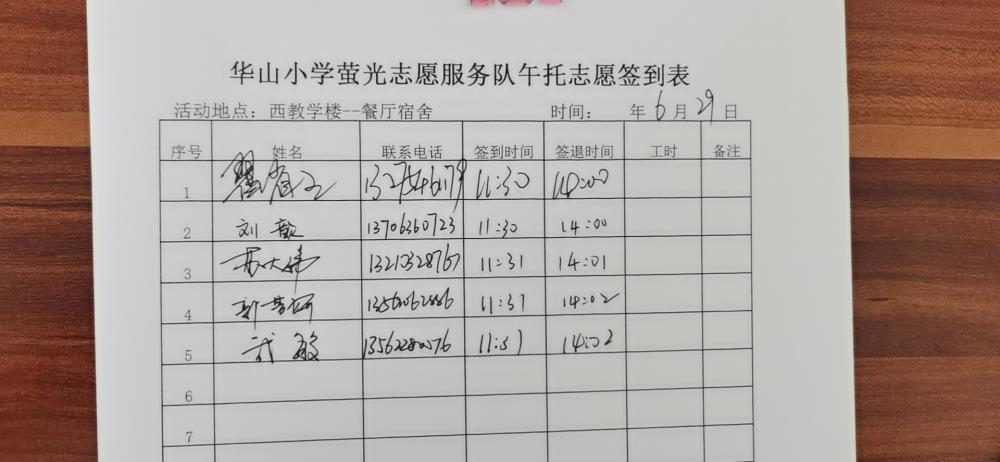 华山小学萤光志愿服务队午托志愿签到表
活动地点：西教学楼--餐厅宿舍 时间： 年6月29日
序号 姓名 联系电话 签到时间 签退时间 工时 备注
1 11:30 14:00
2 刘 13706360723 11:30 14:00
3 苏大伟 13210328767 11:31 14:01
4 11:31 14:02
5 武敏 11:31 14:02
6
7